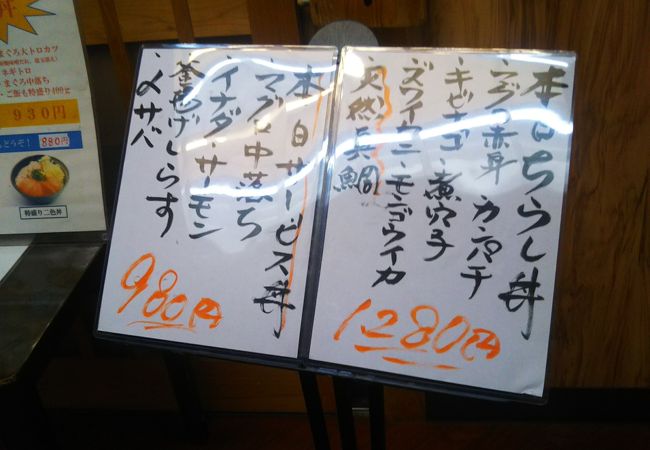 本日ちらし丼
・マグロ赤身・カンパチ
・キビナゴ・煮穴子
・ズワイカニ・モンゴウイカ
・天然真鯛
1280円
本日サービス丼
・マグロ中落ち
・イナダ・サーモン
・釜あげしらす
・〆サバ
980円
丼
まぐろ大トロカツ
ネギトロ
・まぐろ中落ち
・ご飯も特盛り400g
930円
どうぞ！ 880円
特盛り二色丼